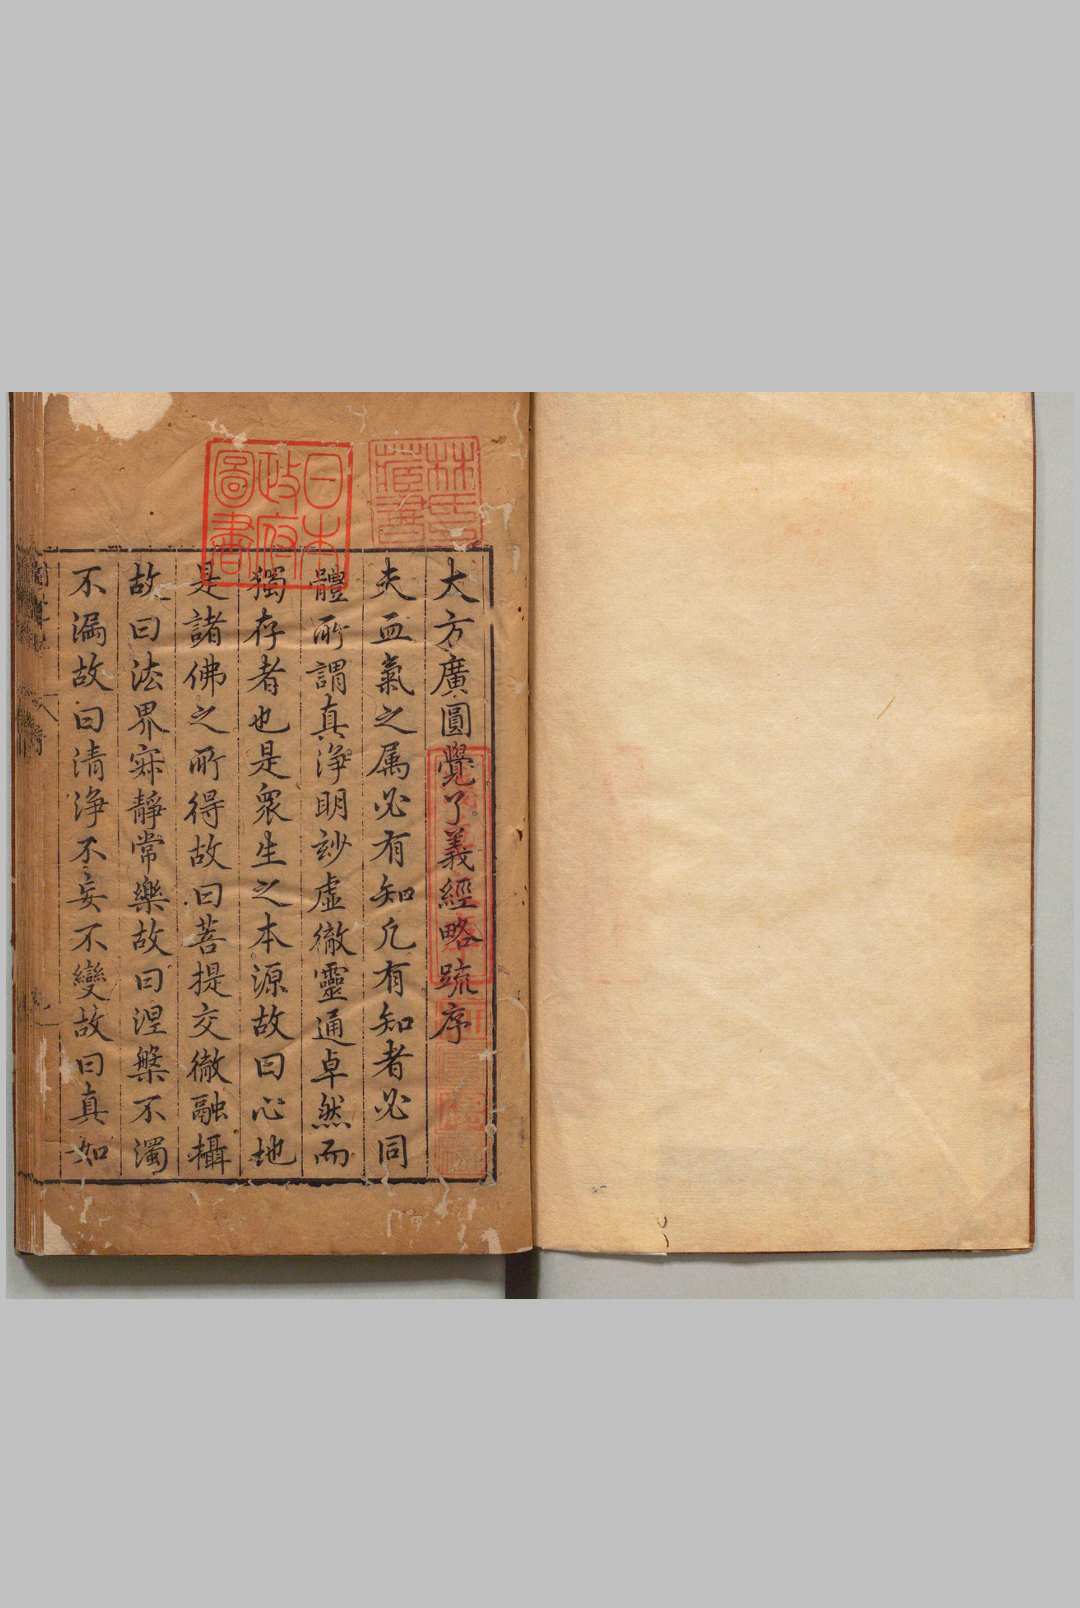 大方廣圓覺了義經略疏序
夫血氣之属必有知凡有知者必同
體所謂真淨明玅虛徹靈通卓然而
獨存者也是衆生之本源故曰心地
是諸佛之所得故曰菩提交徹融攝
故曰法界寂靜常樂故曰涅槃不濁
不漏故曰清淨不妄不變故曰真如
日本
政府
圖書
林氏
藏書